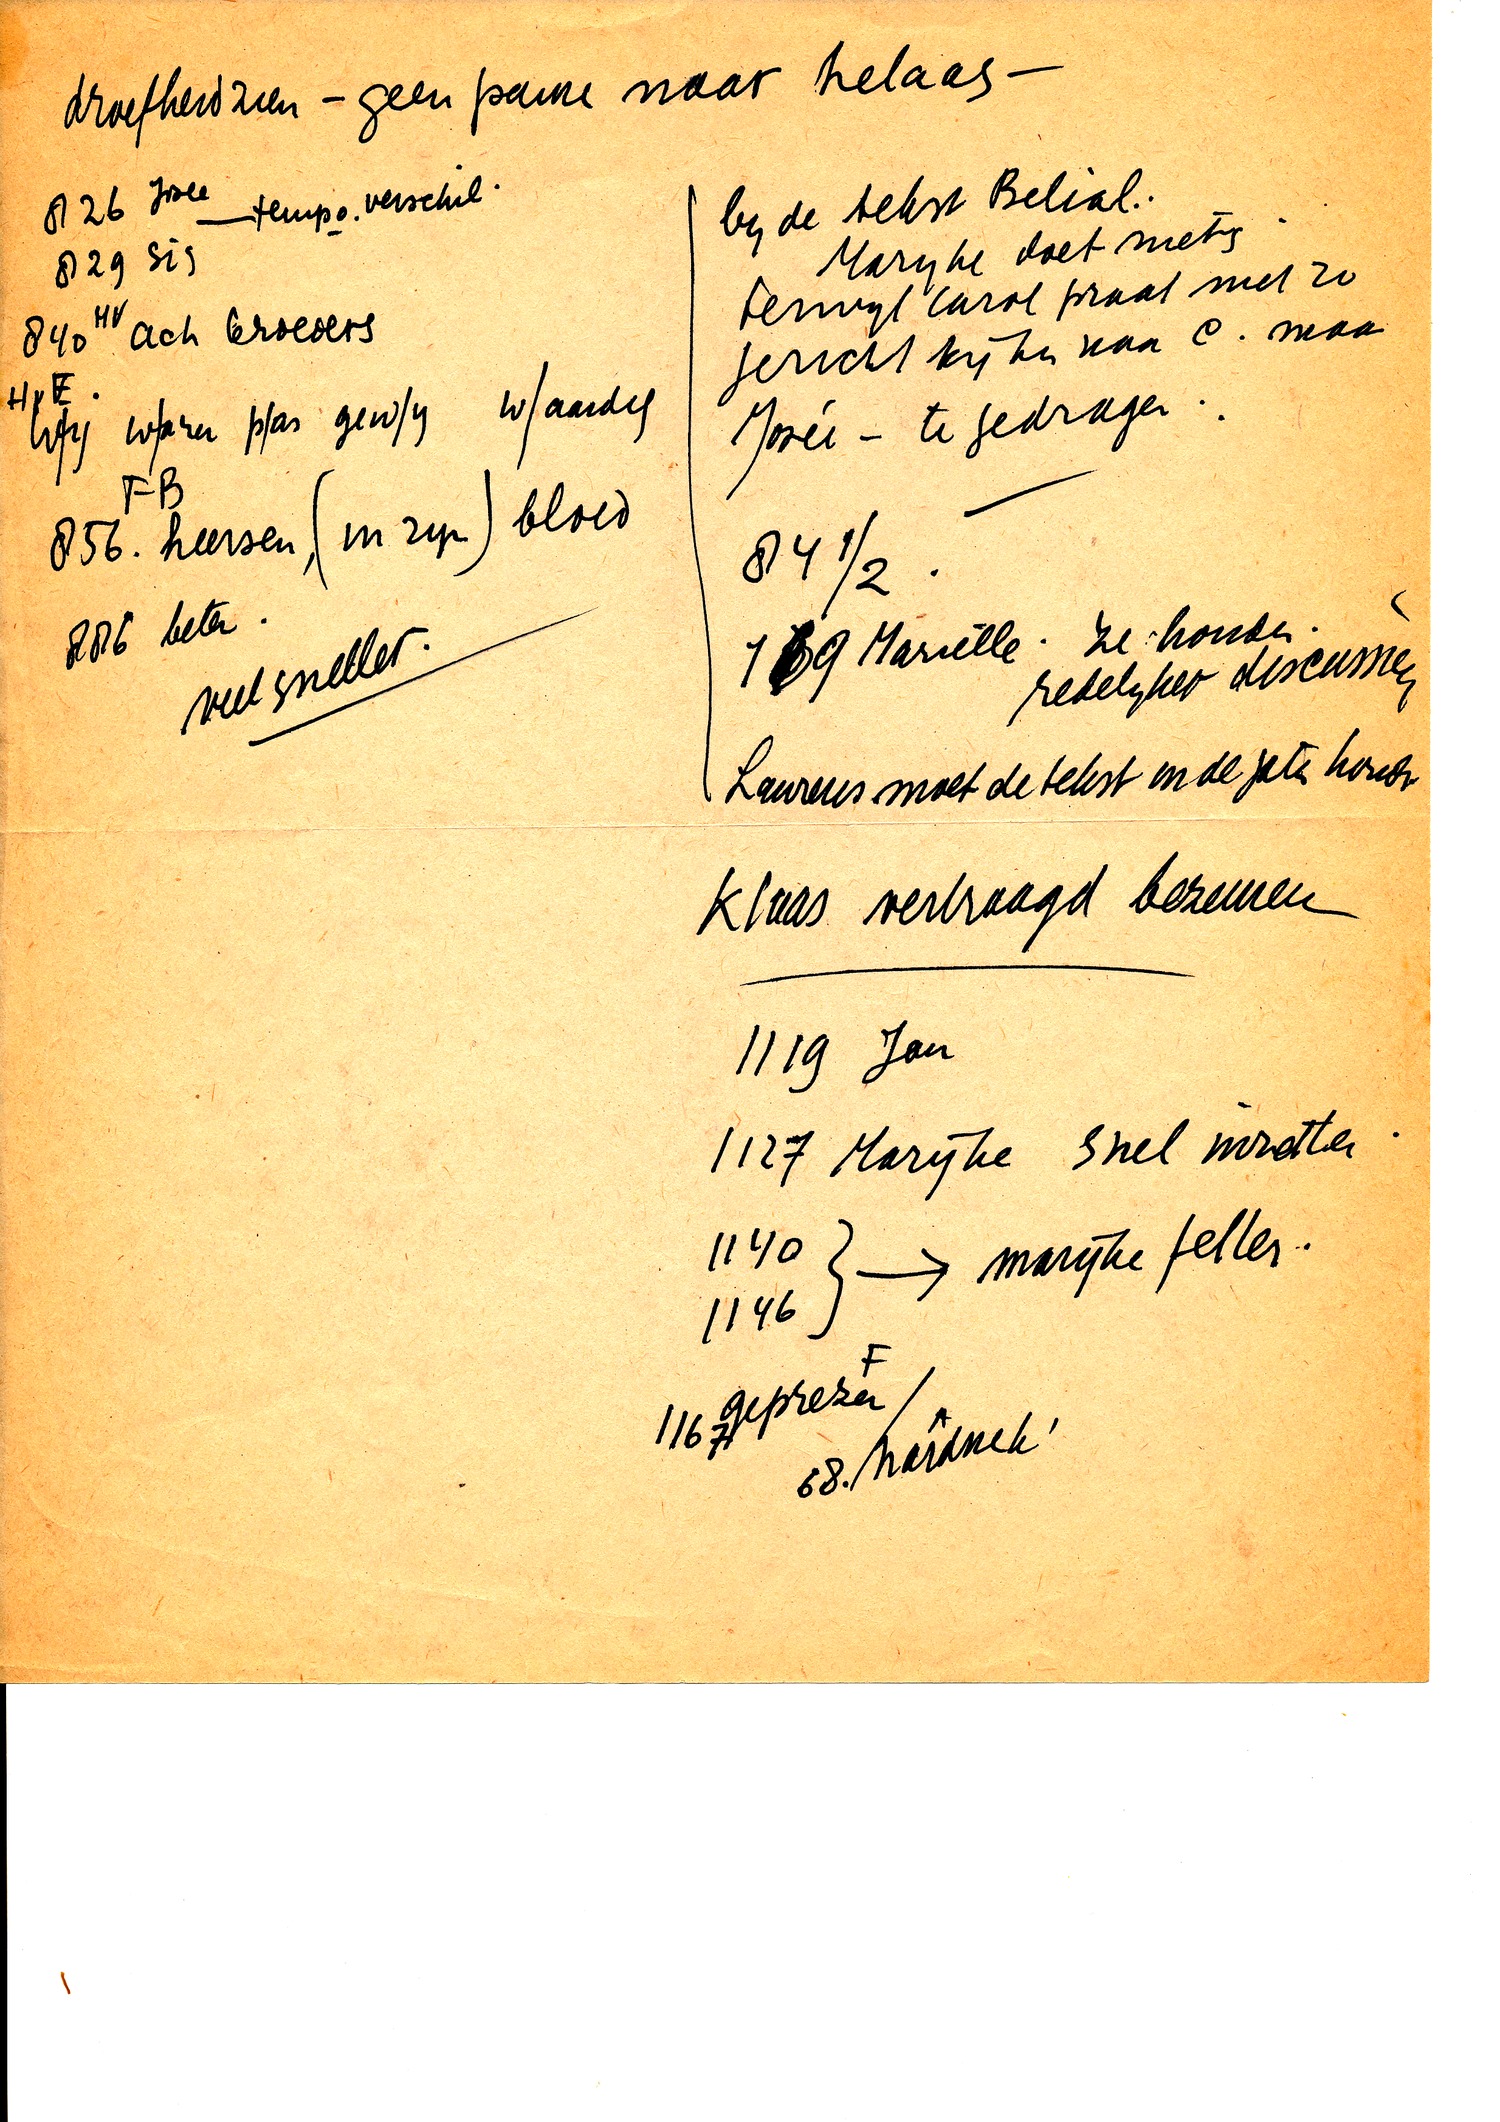 droefheid zien - geen pauze naar helaas -
826 Josee — tempo verschil.
829 Sis
840 HV Ach broeders
HvE.
W/y w/aren p/as gew/y w/aardig
FB
856. heersen, (in zyn) bloed
886 beter.
veel sneller.
by de tekst Belial..
Maryke doet niets
terwyl Carol praat niet zo
gericht kyken naar C. maar
Josée - te gedragen.
84 1/2.
169 Mariëlle. ze houden.
redelyker discussies
Laurens moet de tekst in de gaten houden
Klaas vertraagd
1119 Jan
1127 Maryke snel inzetten.
1140
1146 } → maryke feller.
F
1167 geprezen /
68. / hardnek'